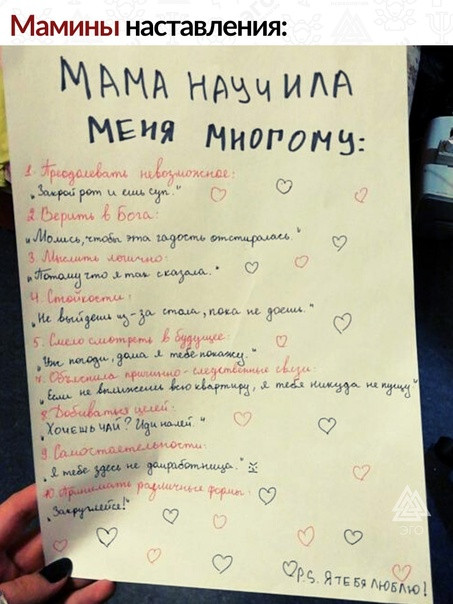 Мамины наставления:
МАМА НАУЧИЛА
МЕНЯ МНОГОМУ:
1. Преодолевать невозможное:
„Закрой рот и ешь суп."
2. Верить в Бога:
„Молись, чтобы эта гадость отстиралась."
3. Мыслить логично:
„Потому что я так сказала."
4. Стойкости:
„Не выйдешь из-за стола, пока не доешь."
5. Смело смотреть в будущее:
погоди, дома я тебе покажу."
Объяснила причинно-следственные связи:
„Если не вылижешь всю квартиру, я тебя никуда не пущу"
8. Добиваться целей:
„ХОЧЕШЬ ЧАЙ? Иди налей."
9. Самостоятельности:
„Я тебе здесь не домработница."
10. Принимать различные формы:
„Закругляйся!"
ЭГО
P.S. Я ТЕБЯ ЛЮБЛЮ!